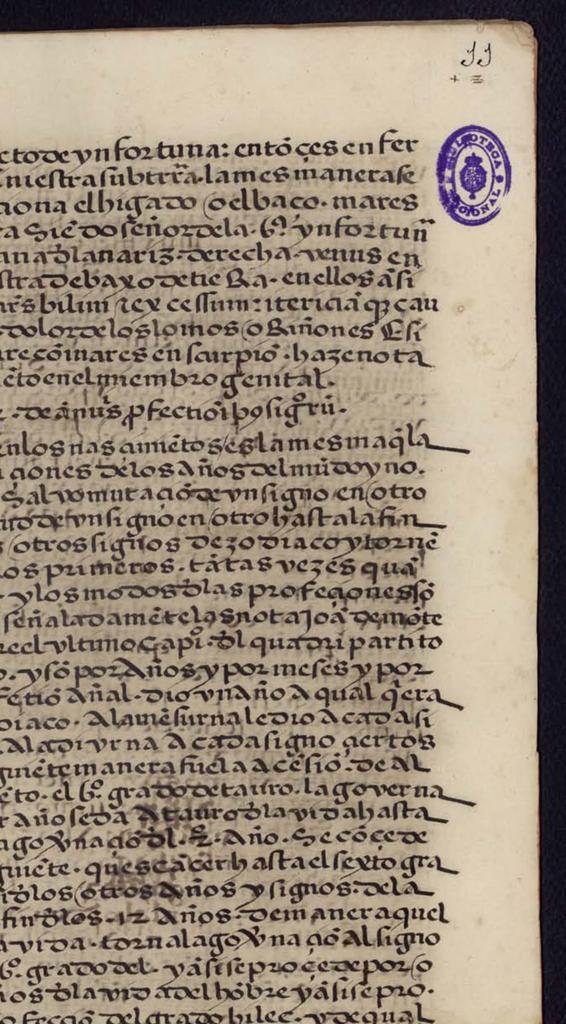 11
BIBLIOTECA NACIONAL
de ynfortuna: entōçes en fer
niestra subtr̄ra. la mesmanera se
ciona el higado o el baco. mares
a siēdo señor de la. 6ª. ynfortun̄
ana dla nariz. derecha. venus en
stra debaxo de tierra. en ellos ā si
bilim z ex cessum: itericiā q̄ cau
dolor de los lomos o Riñones E si
re cō mares en scurpiō. haze nota
ēto en el miembro genital.
. de ānuis ꝓfectiōi
en los nascimiētos es la mesma q̄ la
ciones de los Años del mūdo y no.
Salvo mutaciō de vn signo en otro
de vn signo en otro hasta la fin
otros signos de zodiaco y tornē
os primeros. tātas vezes quā
. y los modos dlas profeciones sō
señaladamēte los nota Joā de mōte
re el vltimo Capº. dl quadripartito
. y sō por Años y por meses y por
fectiō Añal. dio vn año a qual q̄era
diaco. A la mēsurna le dio A cada si
A la diurna A cada signo çertos
guiēte manera fue la acēsiō. de Al
ēto. el 6º. grado de tauro. la governa
Año se da A tauro dla vida hasta
naciō dl. 2º. Año. Se cōçede
guiēte. que se ācer hasta el sexto gra
dlos otros Años y signos de la
fin dlos. 12 Años. demanera quel
a vida. torna la naciō Al signo
6º. grado del. y āsi se proçede por o
os dla vida del hōbre y āsi se pro.
fecciō del grado hilec. y de qual